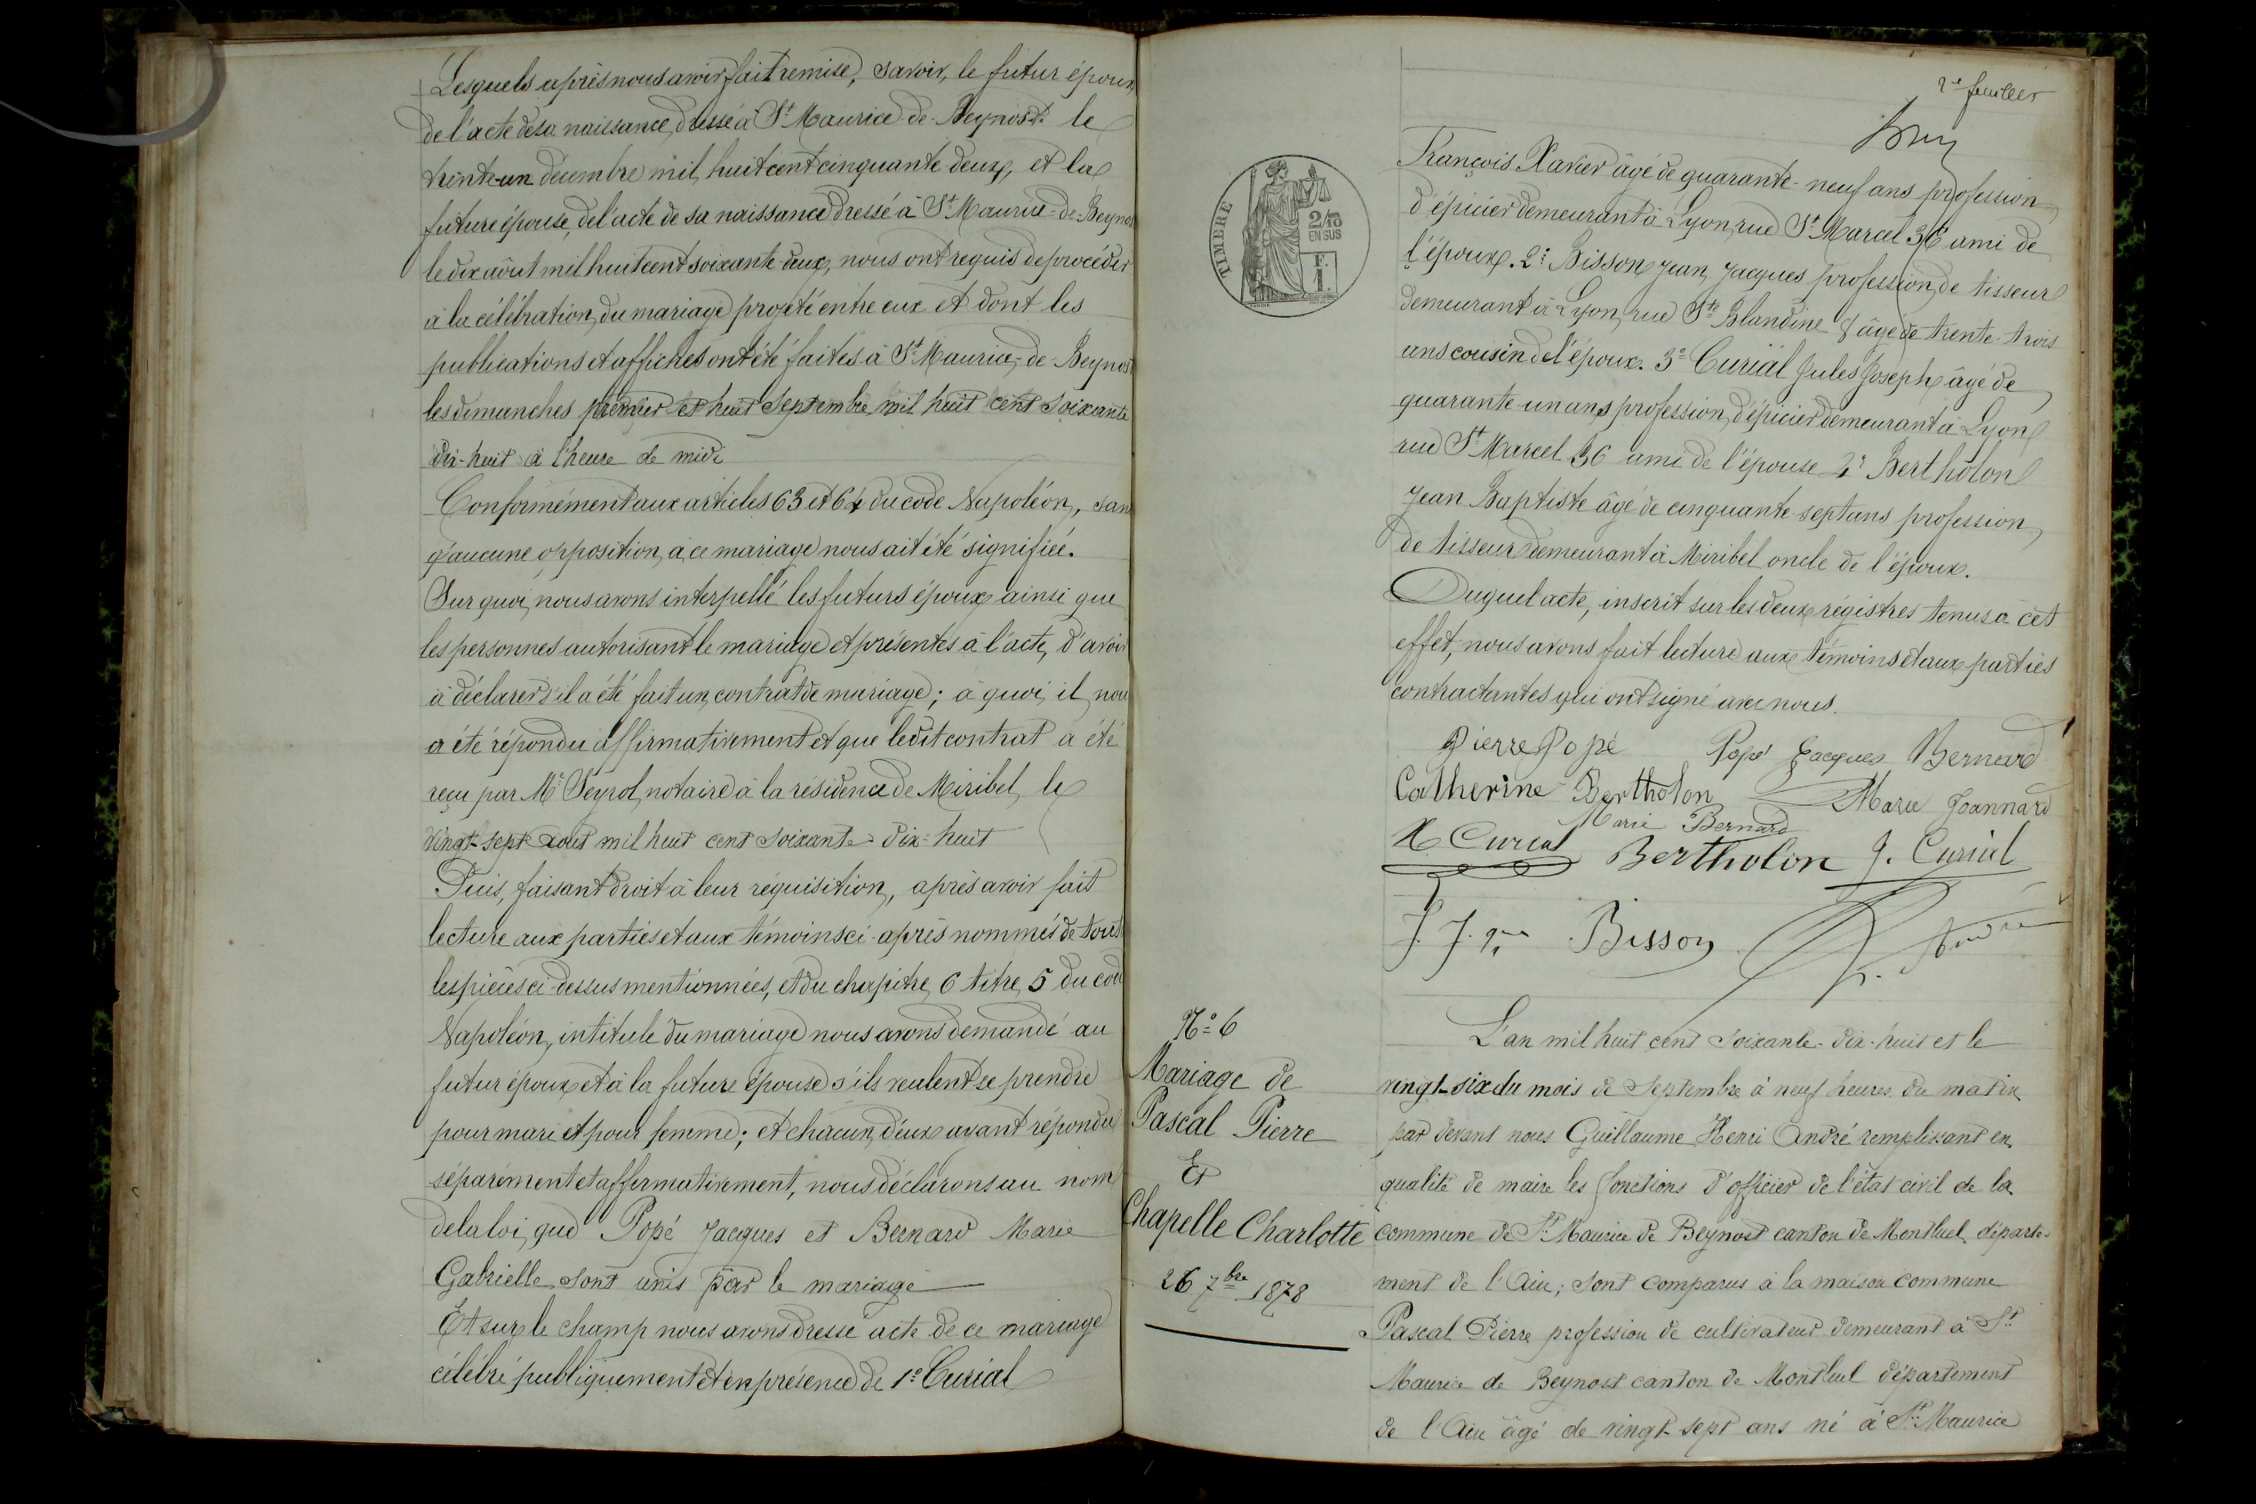 Lesquels après nous avoir fait remise, savoir, le futur époux
de l'acte de sa naissance, dressé à St Maurice de Beynost le
trente-un décembre mil huit cent cinquante deux, et la
future épouse, de l'acte de sa naissance dressé à St Maurice-de-Beynos
le dix août mil huit cent soixante-deux, nous ont requis de procéder
à la célébration du mariage projeté entre eux et dont les
publications et affiches ont été faites à St Maurice-de-Beynost
les dimanches premier et huit Septembre mil huit cent soixante
dix-huit à l'heure de midi
Conformément aux articles 63 et 64 du code Napoléon, san
q'aucune opposition à ce mariage nous ait été signifiée.
Sur quoi, nous avons interpellé les futurs époux ainsi que
les personnes autorisant le mariage et présentes à l'acte, d'avoir
à déclarer s'il a été fait un contrat de mariage; à quoi, il nou
a été répondu affirmativement et que ledit contrat a été
reçu par Me Peyrol, notaire à la résidence de Miribel, le
vingt-sept août mil huit cent soixante-dix-huit
Puis, faisant droit à leur réquisition, après avoir fait
lecture aux parties et aux témoins ci-après nommés de tout
les pièces ci-dessus mentionnées, et du chapitre 6 titre 5 du cod
Napoléon, intitulé du mariage nous avons demandé au
futur époux et à la future épouse s'ils veulent se prendre
pour mari et pour femme; et chacun d'eux ayant répondu
séparément et affirmativement, nous déclarons au nom
de la loi, que Popé Jacques et Bernard Marie
Gabrielle sont unis par le mariage
Et sur le champ nous avons dressé acte de ce mariage
célébré publiquement et en présence de 1° Curial
2e feuillet
TIMBRE
2/10
EN SUS
F.
1.
François Xavier âgé de quarante-neuf ans profession
d'épicier demeurant à Lyon, rue St Marcel 36 ami de
l'époux. 2° Bisson Jean Jacques profession de tisseur
demeurant à Lyon, rue Ste Blandine 8 âgé de trente-trois
ans cousin de l'époux. 3° Curial Jules Joseph âgé de
quarante-un ans profession d'épicier demeurant à Lyon
rue St Marcel 36 ami de l'épouse 4° Bertholon
Jean Baptiste âgé de cinquante-sept ans profession
de tisseur demeurant à Miribel oncle de l'époux.
Duquel acte, inscrit sur les deux régistres tenus à cet
effet, nous avons fait lecture aux témoins et aux parties
contractantes qui ont signé avec nous.
Pierre Popé Popé Jacques Bernard
Catherine Bertholon Marie Joannard
Marie Bernard
X Curial Bertholon J. Curial
J. J. Bisson André
N° 6
Mariage de
Pascal Pierre
Et
Chapelle Charlotte
26 7bre 1878
L'an mil huit cent soixante-dix-huit et le
vingt-six du mois de Septembre à neuf heures du matin
par devant nous Guillaume Henri André remplissant en
qualité de maire les fonctions d'officier de l'état civil de la
commune de St Maurice de Beynost canton de Montluel départe-
ment de l'Ain; sont comparus à la maison commune
Pascal Pierre profession de cultivateur demeurant à St
Maurice de Beynost canton de Montluel département
de l'Ain âgé de vingt-sept ans né à St Maurice